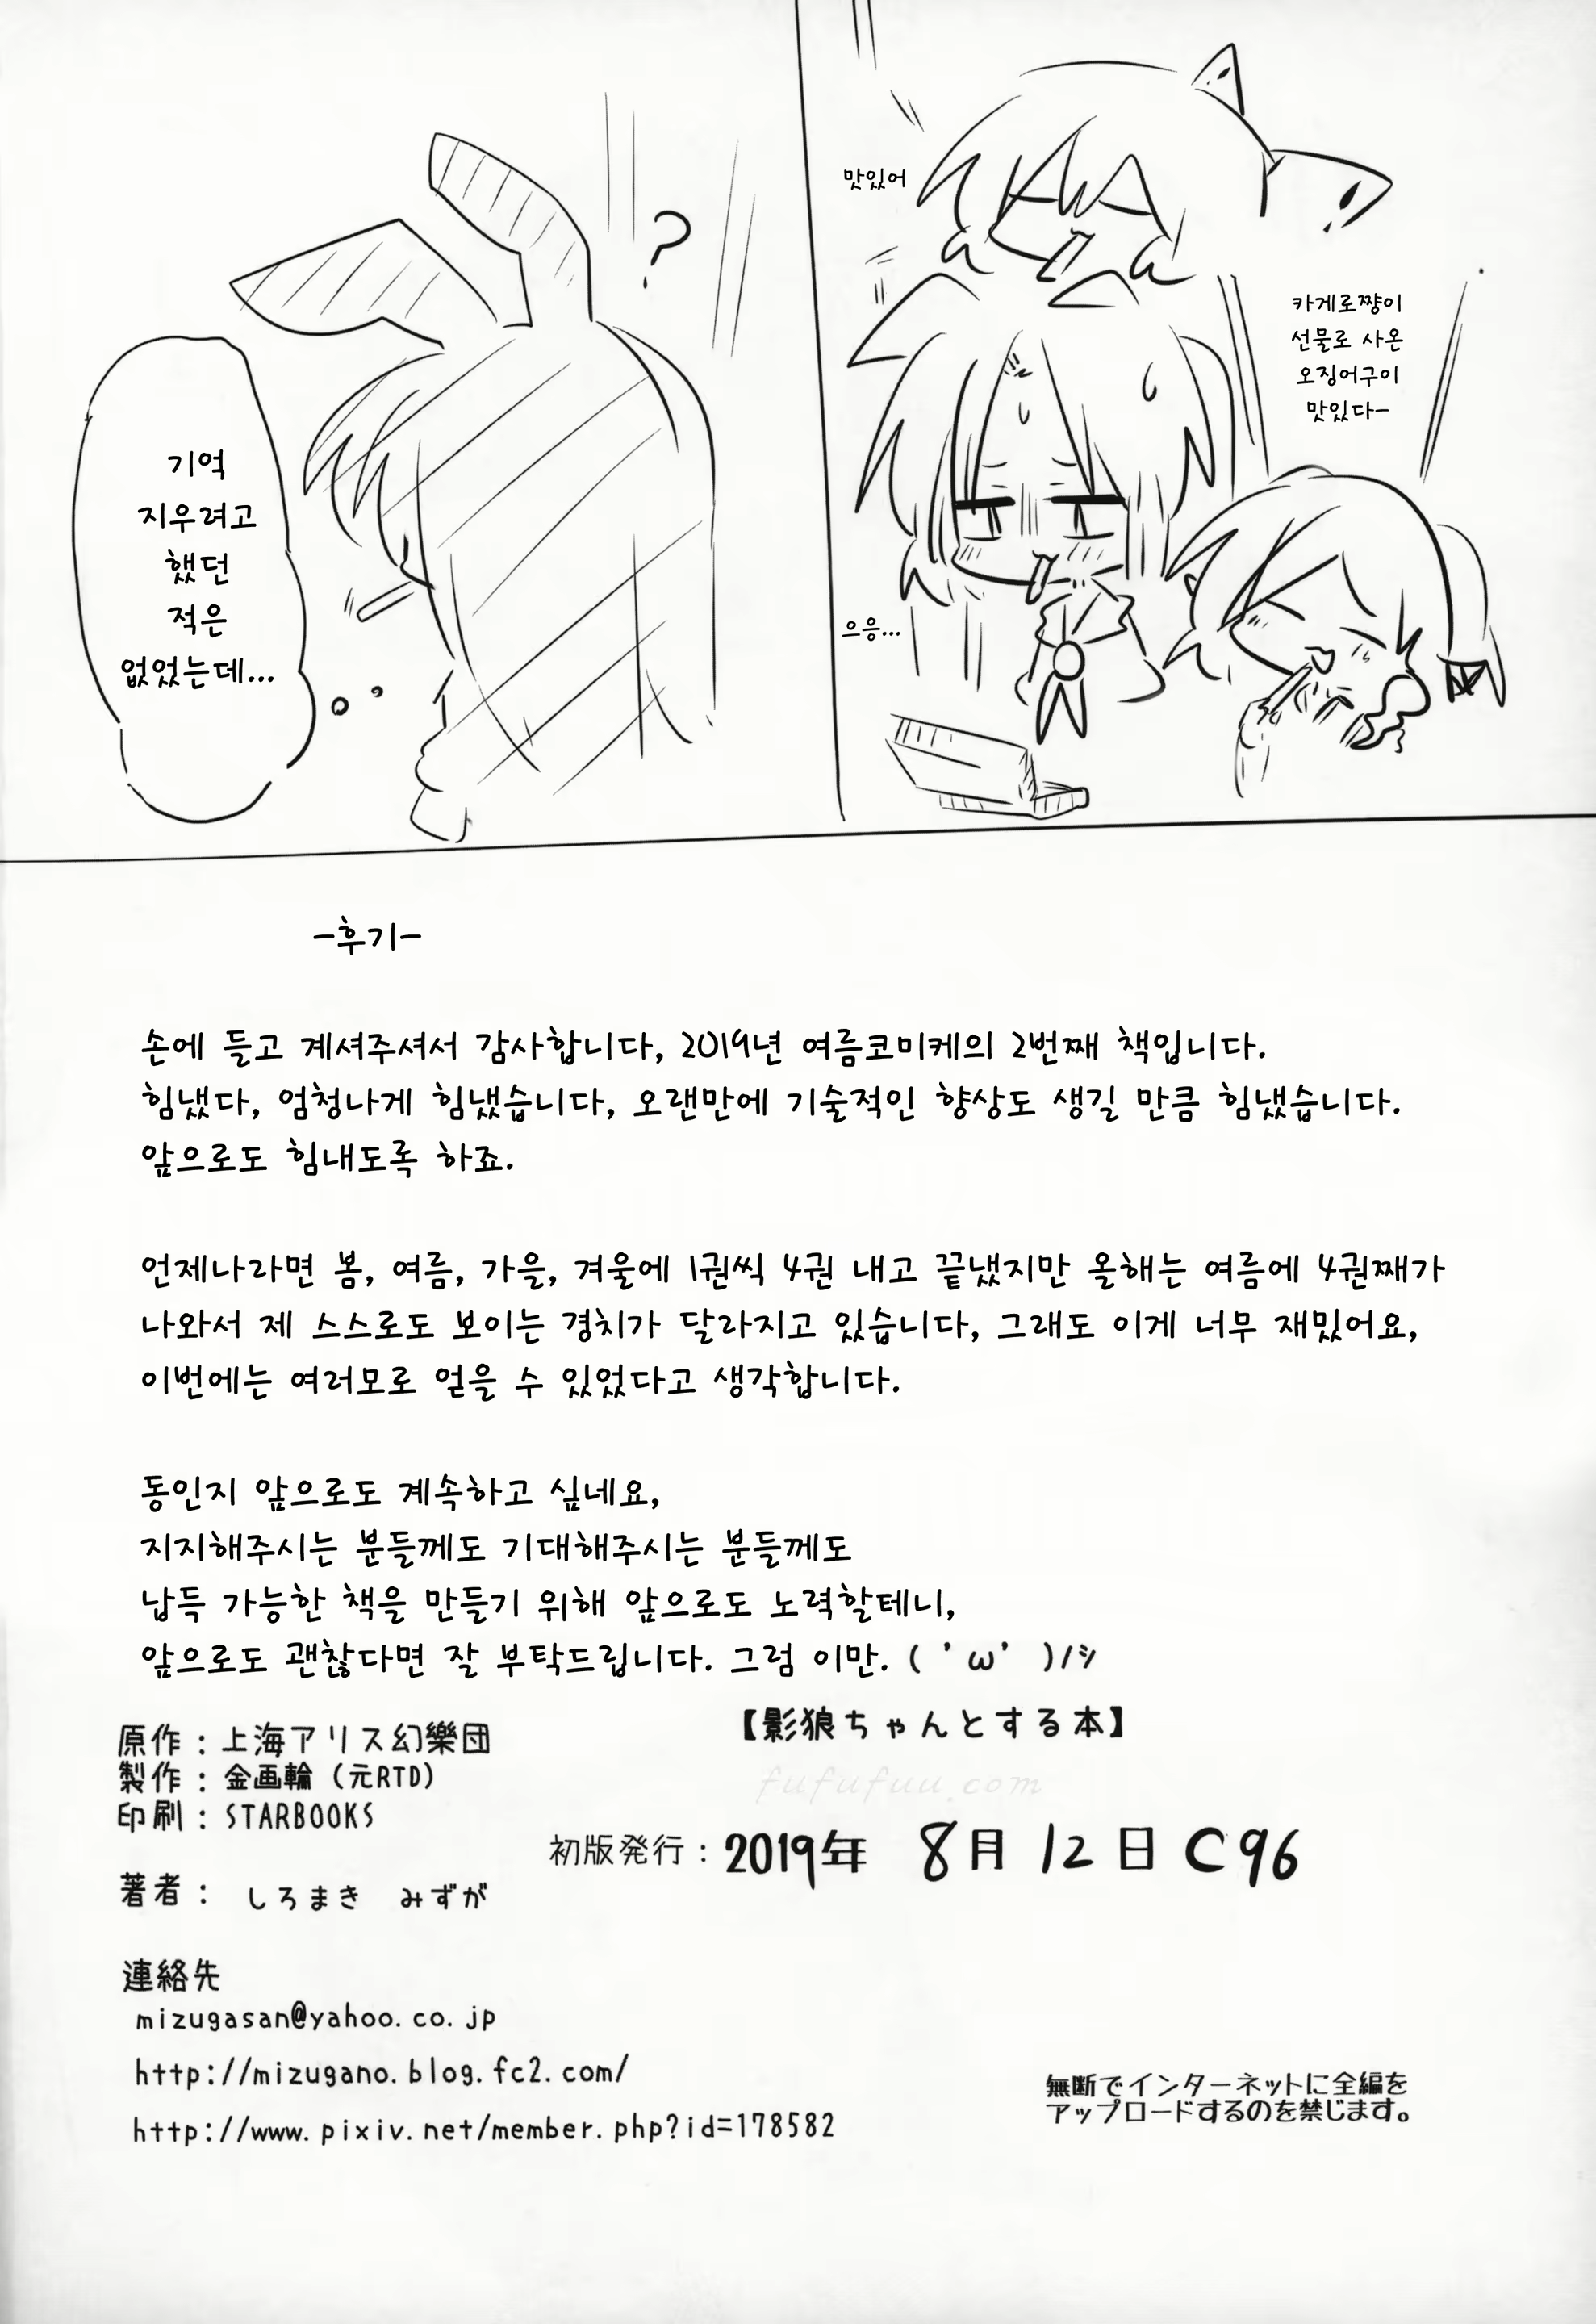 맛있어
카게로쨩이
선물로 사온
오징어구이
맛있다-
으응...
?
기억
지우려고
했던
적은
없었는데...
-후기-
손에 들고 계셔주셔서 감사합니다, 2019년 여름코미케의 2번째 책입니다.
힘냈다, 엄청나게 힘냈습니다, 오랜만에 기술적인 향상도 생길 만큼 힘냈습니다.
앞으로도 힘내도록 하죠.
언제나라면 봄, 여름, 가을, 겨울에 1권씩 4권 내고 끝냈지만 올해는 여름에 4권째가
나와서 제 스스로도 보이는 경치가 달라지고 있습니다, 그래도 이게 너무 재밌어요,
이번에는 여러모로 얻을 수 있었다고 생각합니다.
동인지 앞으로도 계속하고 싶네요,
지지해주시는 분들께도 기대해주시는 분들께도
납득 가능한 책을 만들기 위해 앞으로도 노력할테니,
앞으로도 괜찮다면 잘 부탁드립니다. 그럼 이만. ( 'ω' )/ｼ
【影狼ちゃんとする本】
原作：上海アリス幻樂団
製作：金画輪（元RTD）
印刷：STARBOOKS
fufufuu.com
初版発行：2019年 8月12日 C96
著者： しろまき みずが
連絡先
mizugasan@yahoo.co.jp
http://mizugano.blog.fc2.com/
http://www.pixiv.net/member.php?id=178582
無断でインターネットに全編を
アップロードするのを禁じます。